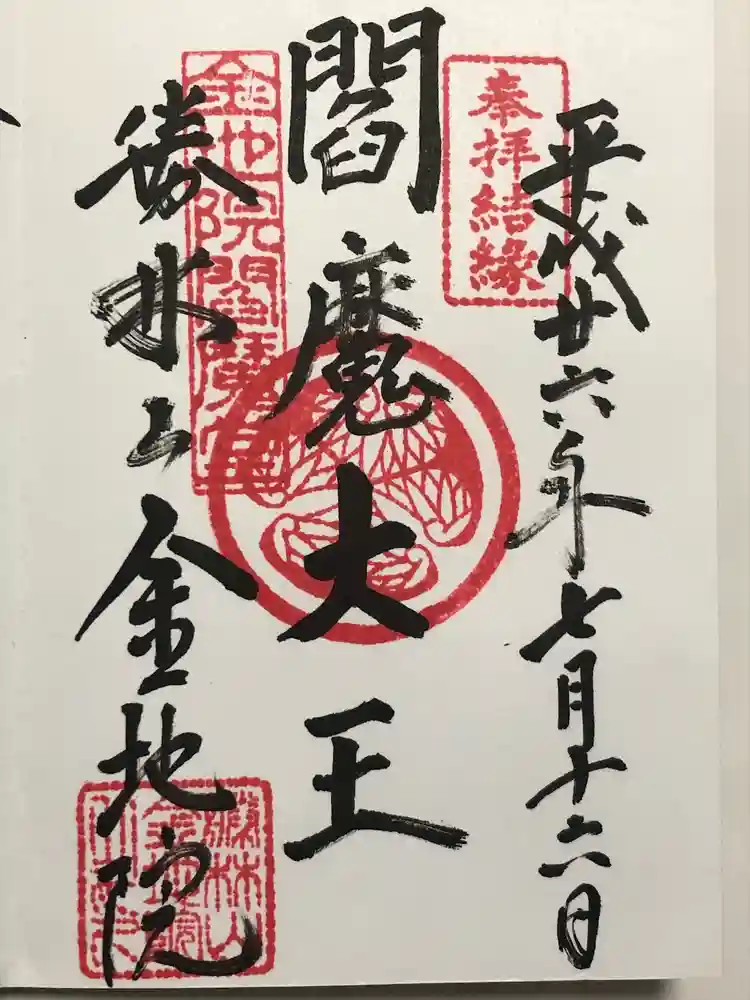 平成廿六年七月十六日
奉拝結縁
閻魔大王
金地院閻魔
勝林山金地院
勝林山
金地院